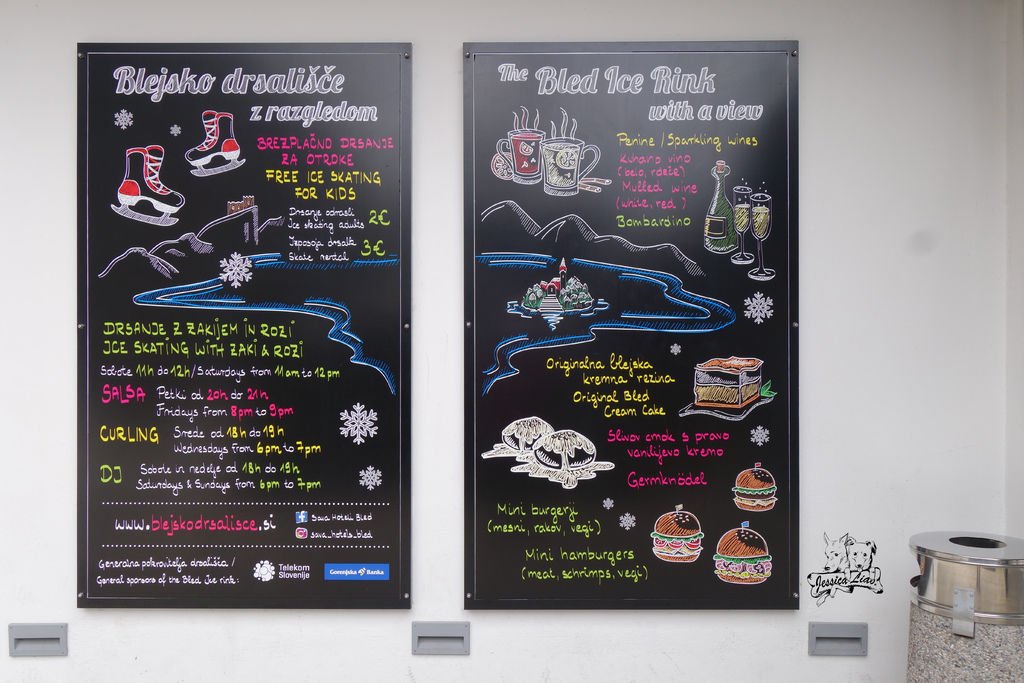 Blejsko drsališče
z razgledom
BREZPLAČNO DRSANJE
ZA OTROKE
FREE ICE SKATING
FOR KIDS
Drsanje odrasli
Ice skating adults
2€
Izposoja drsalk
Skate rental
3€
DRSANJE Z ZAKIJEM IN ROZI
ICE SKATING WITH ZAKI & ROZI
Sobote 11h do 12h/Saturdays from 11am to 12pm
SALSA Petki od 20h do 21h
Fridays from 8pm to 9pm
CURLING Srede od 18h do 19h
Wednesdays from 6pm to 7pm
DJ Sobote in nedelje od 18h do 19h
Saturdays & Sundays from 6pm to 7pm
www.blejskodrsalisce.si
Sava Hoteli Bled
sava_hotels_bled
Generalna pokrovitelja drsališča /
General sponsors of the Bled Ice rink:
Telekom
Slovenije
Gorenjska Banka
The Bled Ice Rink
with a view
Penine / Sparkling wines
Kuhano vino
(belo, rdeče)
Mulled wine
(white, red)
Bombardino
Originalna blejska
kremna rezina
Original Bled
Cream Cake
Slivov cmok s pravo
vanilijevo kremo
Germknödel
Mini burgerji
(mesni, rakov, vegi)
Mini hamburgers
(meat, schrimps, vegi)
Jessica Liao